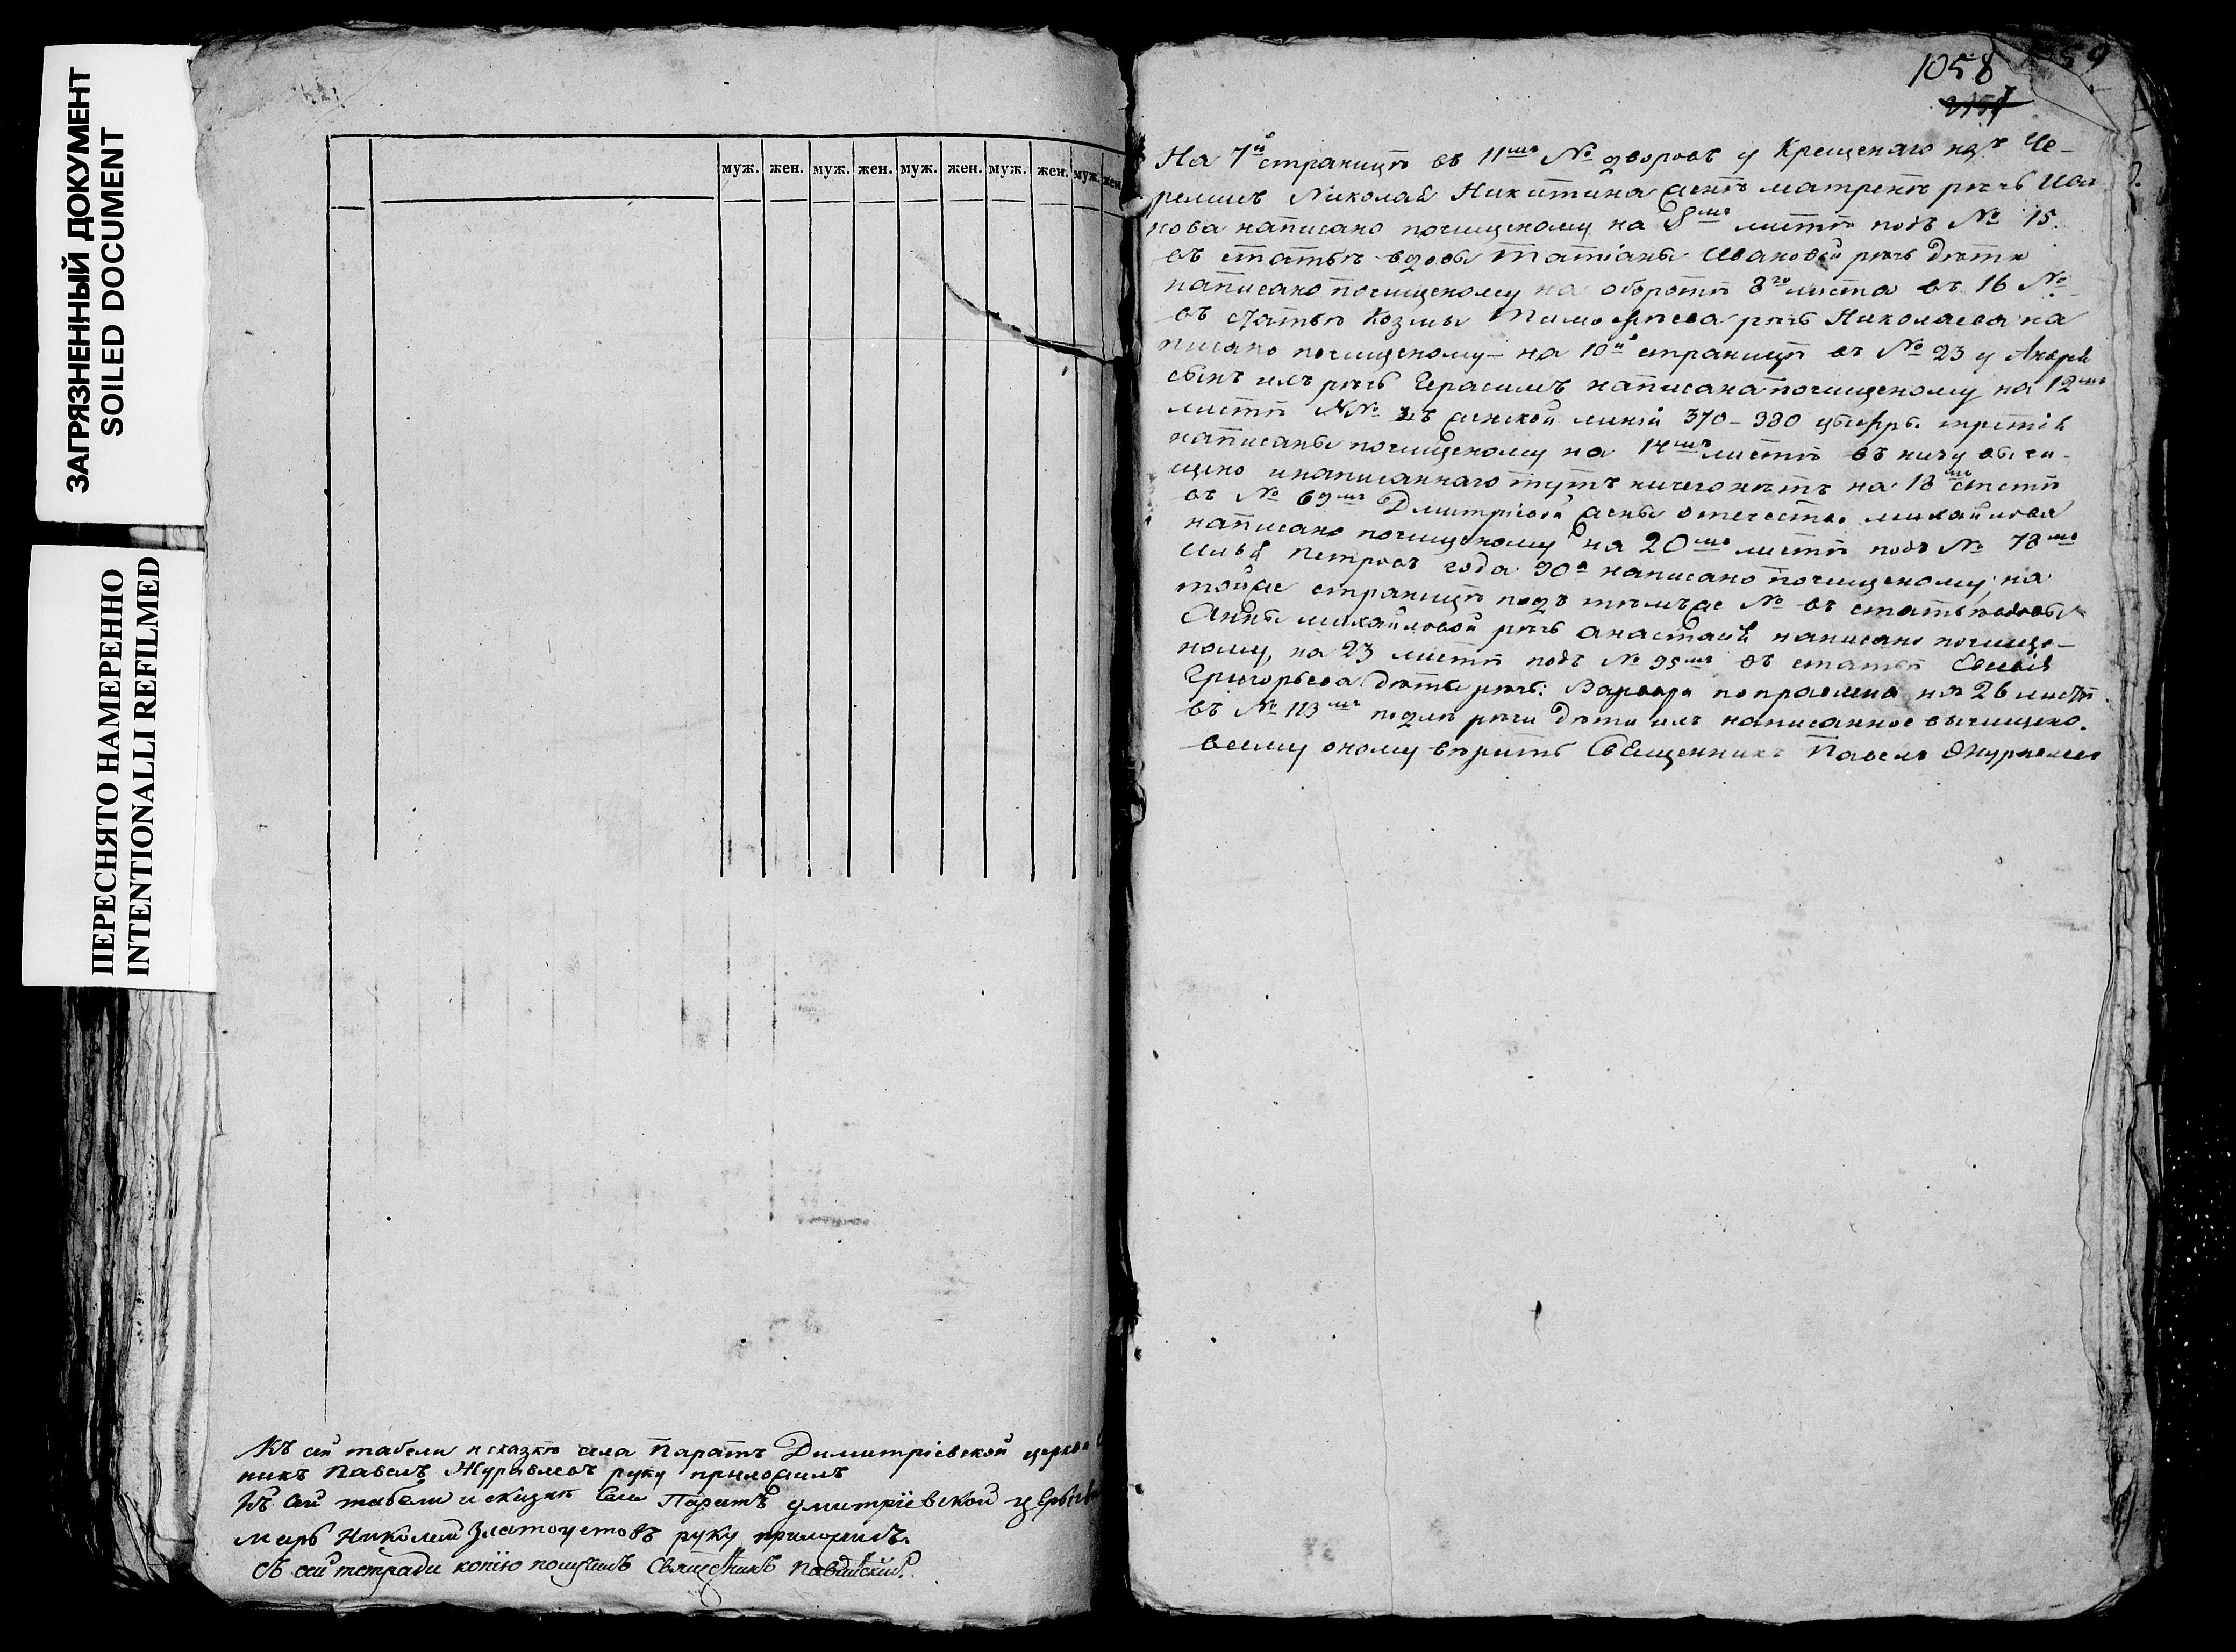 ЗАГРЯЗНЕННЫЙ ДОКУМЕНТ
SOILED DOCUMENT
ПЕРЕСНЯТО НАМЕРЕННО
INTENTIONALLI REFILMED
муж. жен. муж. жен. муж. жен. муж. жен. муж. жен
Къ сей табели и сказкѣ села Паратъ Димитріевской церкви
никъ Павелъ Журавлевъ руку приложилъ
Къ сей табели и скаскѣ села Паратъ Дмитріевской церкви
марь Николай Златоустовъ руку приложилъ.
Съ сей тетради копію получилъ Священникъ
1058
На 7й страницѣ въ 11мъ № дворовъ у Крещенаго изъ Че-
ремисъ Николая Никитина женѣ матренѣ рѣчь Ива
нова написано почищеному на 8мъ листѣ подъ № 15.
въ статьѣ вдовы Татіаны Ивановой рѣчь дѣти
написано почищеному на оборотѣ 8го листа въ 16 №
въ статьѣ Козмы Тимофѣева рѣчь Николаева на
писано почищеному - на 10й страницѣ въ № 23 у Андрея
сынъ ихъ рѣчь Герасимъ написана почищеному на 12мъ
листѣ №№ въ женской линіи 370 - 380 цыфръ третія
написаны почищеному на 14мъ листѣ въ низу вычи-
щено и написаннаго тутъ ничего нѣтъ на 18мъ листѣ
въ № 69мъ Дмитріевой жены отечество михайлова
написано почищеному на 20мъ листѣ подъ № 78мъ
Илья Петровъ года 30а написано почищеному, на
тойже страницѣ подъ тѣмъже № въ статьѣ вдовы
Анны михайловой рѣчь анастасія написано почище-
ному, на 23 листѣ подъ № 95мъ въ статьѣ
Григорьева дѣти рѣчь: Варвара поправлена на 26 листѣ
въ № 113мъ подлѣ рѣчи дѣти ихъ написанное вычищено.
всему оному вѣритъ Священникъ Павелъ Журавлевъ